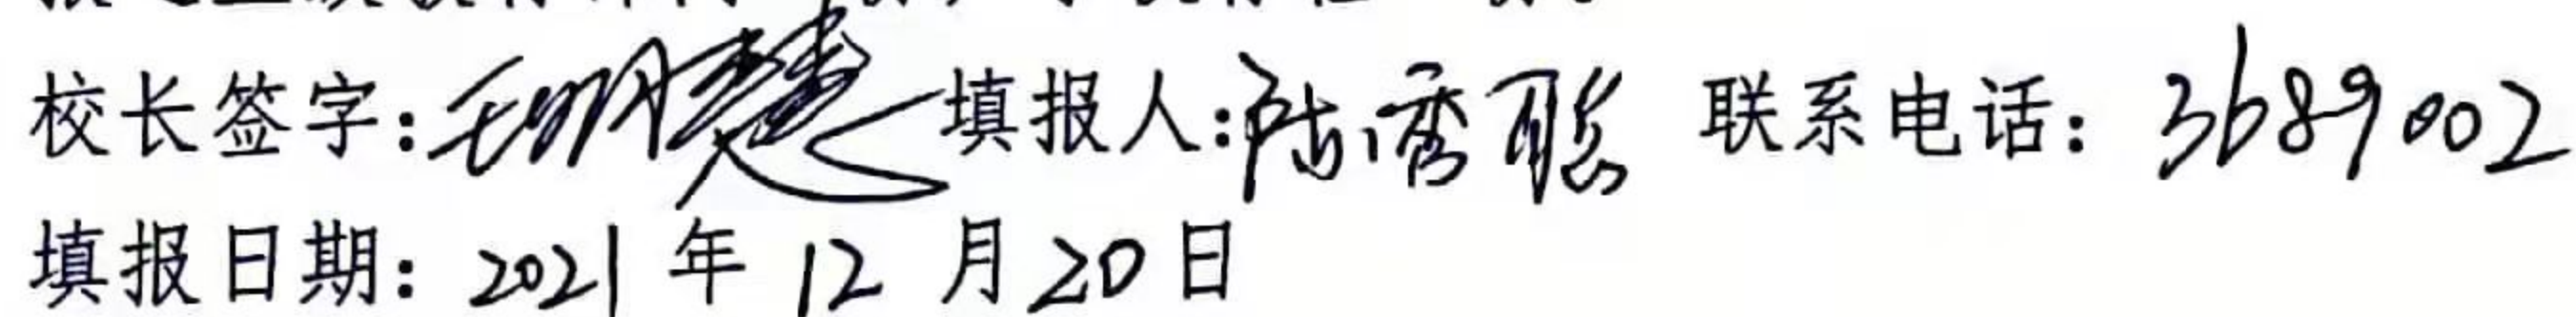 校长签字: 填报人:陆秀联 联系电话: 3689002
填报日期: 2021 年 12 月 20 日